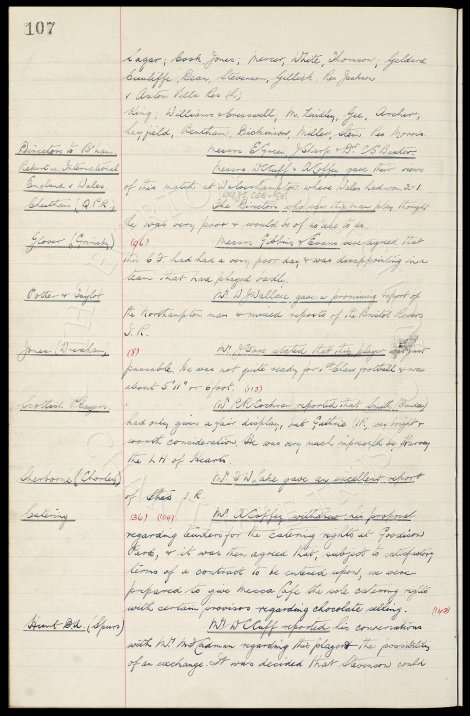 107
Sagar, Cook, Jones, Mercer, White, Thomson, Geldard
Cunliffe, Dean, Stevenson, Gillick. Res Jackson
v Aston Villa Res (h)
King; Williams & Cresswell, Mr Lindley, Gee, Archer,
Leyfield, Bentham, Dickinson, Miller, Res Morris.
Directors to B'ham. Messrs E Green, J Sharp & Dr C S Baxter.
Reports re International Messrs W C Cuff & A Coffey gave their views
England v Wales of this match at Wolverhampton where Wales had won 2-1.
Cheetham (Q.P.R.) The Directors who saw this man play thought
he was very poor & would be of no use to us.
Glover (Grimsby) (96) Messrs Gibbins & Evans were agreed that
this C.F. had had a very poor day & was disappointing in a
team that had played badly.
Potter & Taylor Mr W J Wallace gave a promising report of
the Northampton man & missed reports of the Bristol Rovers
I.R.
Jones (Wrexham) (8) Mr J Fare stated that this player was just
passable. He was not quite ready for 1st Class football & was
about 5' 11" or 6 foot. (113)
Scottish Players. Mr R R Cochran reported that Smith, (Dundee)
had only given a fair display, but Guthrie was bright &
worth consideration. He was very much impressed by Harvey
the L.H. of Hearts.
Sherborne (Chorley) Mr G W Lake gave an excellent report
of this I.R.
Catering (36) (104) Mr A Coffey withdrew his proposal
regarding tenders for the catering rights at Goodison
Park, & it was then agreed that, subject to satisfactory
terms of a contract to be entered upon, we were
prepared to give Mecca Cafe the sole catering rights
with certain provisors regarding chocolate selling. (142)
Hunt D.A (Spurs) Mr W C Cuff reported his conversations
with Mr McCadman regarding this player & the possibility
of an exchange. It was decided that Stevenson could